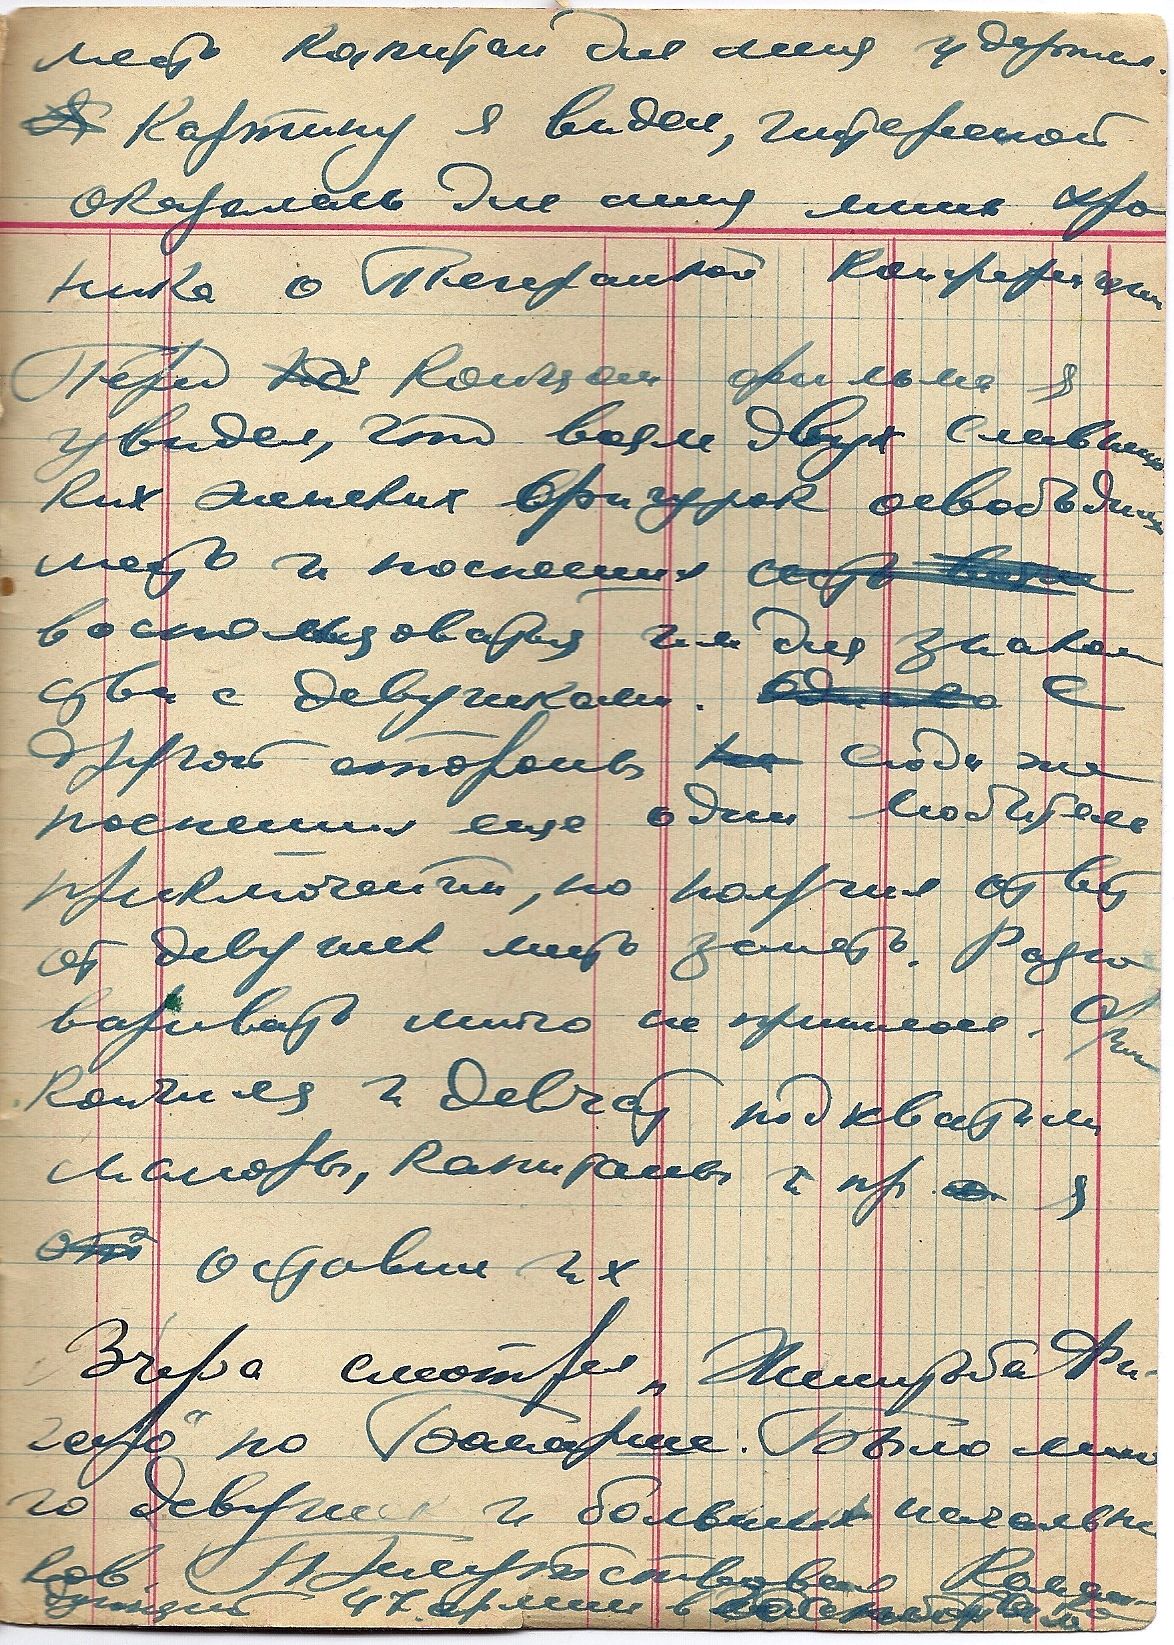 место капитан для меня удержал.
Картину я видел, интересной
оказалась для меня лишь хро
ника о Тегеранской конференции
Перед концом фильма я
увидел, что возле двух славянс
ких женских фигурок освободилось
место и поспешил
воспользоваться им для знаком
ства с девушками. С
другой стороны сюда же
поспешил еще один любитель
приключений, но получил ответ
от девушек место занято. Разго
варивать много не пришлось.
кончился и девчат подхватили
майоры, капитаны и пр. я
оставил их
Вчера смотрел „Женитьба Фи-
гаро" по Бомарше. Было мно
го девушек и больших начальни
ков. Присутствовал Коман-
дующий 47 армии